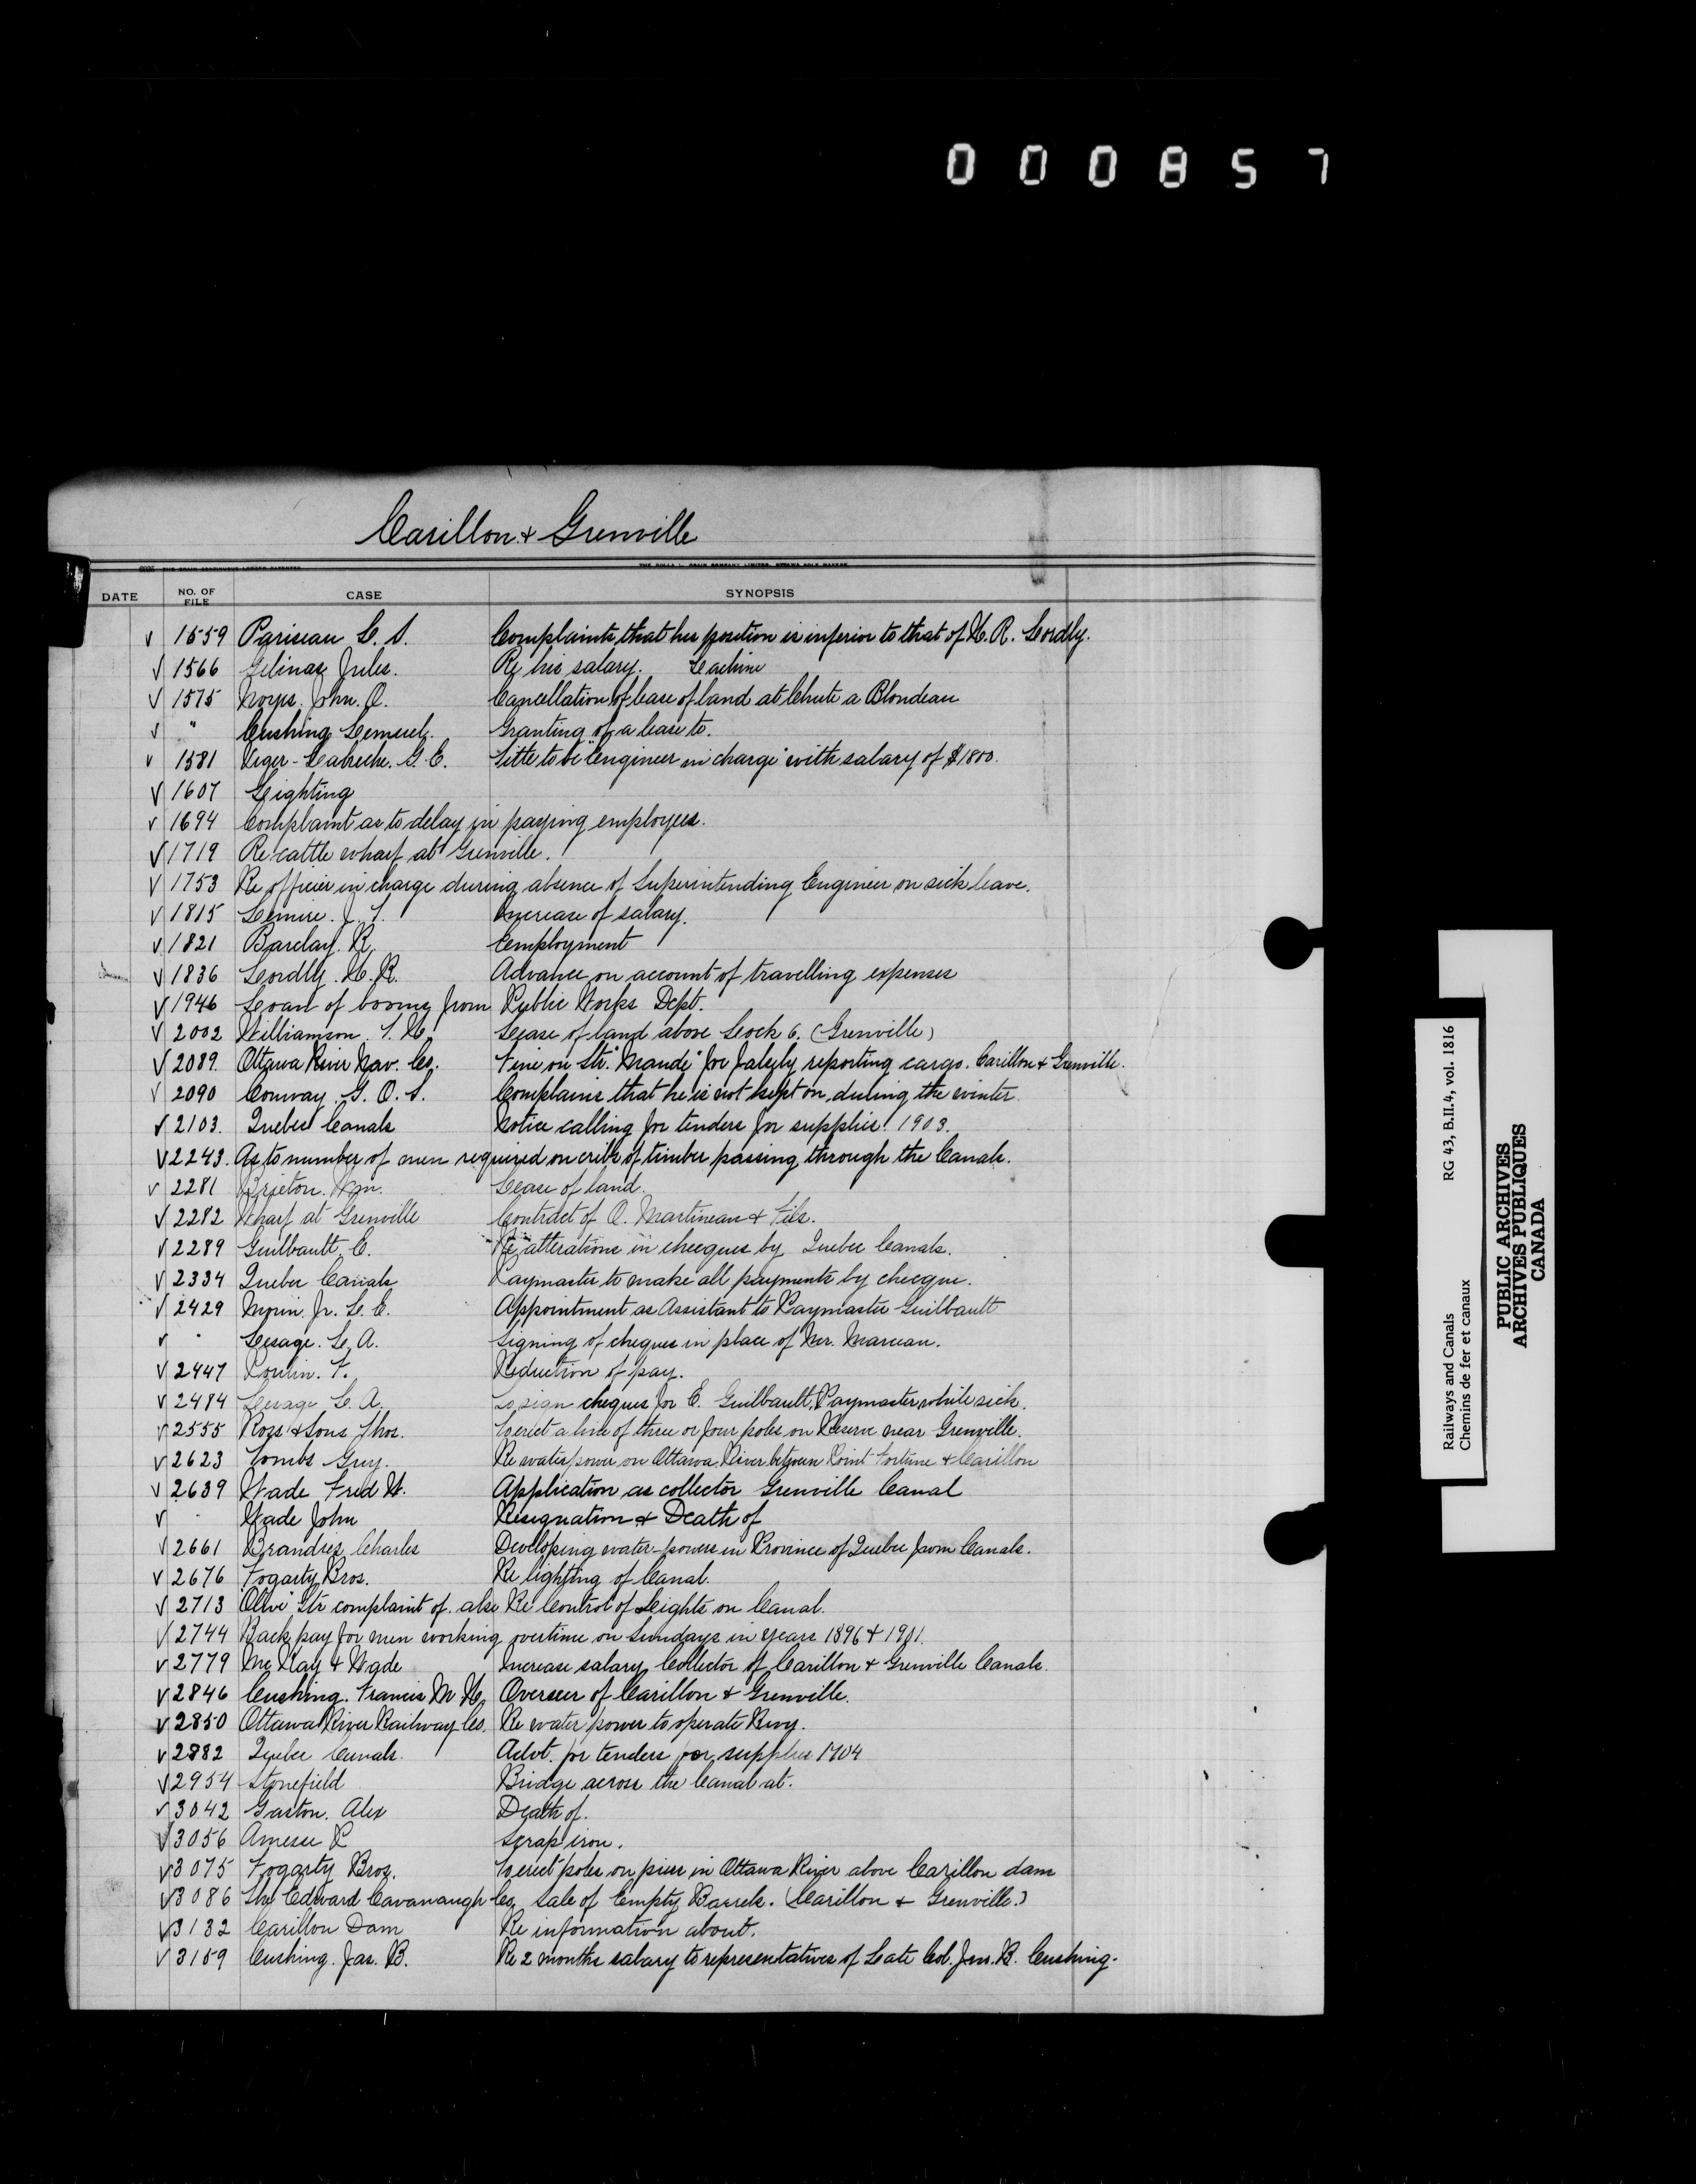 000857
Carillon & Grenville
DATE NO. OF FILE CASE SYNOPSIS
√ 1559 Pariseau L. S. Complaints that his position is inferior to that of H. R. Lordly.
√ 1566 Gelinas Jules. Re his salary. Lachine
√ 1575 Norris. John. O. Cancellation of lease of land at Chute a Blondeau
√ " Cushing Lemuel. Granting of a lease to.
√ 1581 Viger-Labreche. G. E. Title to be "Engineer in charge" with salary of $1800.
√ 1607 Lighting
√ 1694 Complaint as to delay in paying employees.
√ 1719 Re cattle wharf at Grenville.
√ 1753 Re officier in charge during absence of Superintending Engineer on sick leave.
√ 1815 Lemire. J. T. Increase of salary.
√ 1821 Barclay. R. Employment
√ 1836 Lordly. H. R. Advance on account of travelling expenses
√ 1946 Loan of booms from Public Works Dept.
√ 2002 Williamson. T. H. Lease of land above Lock 6. (Grenville)
√ 2089. Ottawa River Nav. Co. Fine on Str. "Maude" for falsely reporting cargo. Carillon & Grenville.
√ 2090 Conway. G. O. S. Complains that he is not kept on during the winter.
√ 2103. Quebec Canals Notice calling for tenders for supplies. 1903.
√ 2243. As to number of men required on cribs of timber passing through the Canals.
√ 2281 Wm. Lease of land.
√ 2282 Wharf at Grenville Contract of O. Martineau & Fils.
√ 2289 Guilbault. E. Re alterations in checques by Quebec Canals.
√ 2334 Quebec Canals Paymaster to make all payments by checque.
√ 2429 Morin. Jr. L. E. Appointment as Assistant to Paymaster Guilbault
√ " Lesage. L. A. Signing of cheques in place of Mr. Marceau.
√ 2447 Poulin. F. Reduction of pay.
√ 2484 Lesage L. A. To sign cheques for E. Guilbault, Paymaster, while sick.
√ 2555 Ross & Sons Thos. To erect a line of three or four poles on Reserve near Grenville.
√ 2623 Tombs Guy. Re water power on Ottawa River between Point Fortune & Carillon
√ 2639 Wade Fred W. Application as collector Grenville Canal
√ " Wade John Resignation & Death of
√ 2661 Brandies Charles Developing water-powers in Province of Quebec from Canals.
√ 2676 Fogarty Bros. Re lighting of Canal.
√ 2713 "Olive" Str complaint of. also Re Control of Lights on Canal.
√ 2744 Back pay for men working overtime on Sundays in years 1896 & 1901.
√ 2779 McKay & Wade Increase salary Collector of Carillon & Grenville Canals.
√ 2846 Cushing. Francis M H. Overseer of Carillon & Grenville.
√ 2850 Ottawa River Railway Co. Re water power to operate Rwy.
√ 2882 Quebec Canals. Advt. for tenders for supplies 1904
√ 2954 Stonefield Bridge across the Canal at.
√ 3042 Gaston. Alex Death of.
√ 3056 Amesse L Scrap iron.
√ 3075 Fogarty Bros. To erect poles on piers in Ottawa River above Carillon dam
√ 3086 The Edward Cavanaugh Co. Sale of Empty Barrels. (Carillon & Grenville.)
√ 3132 Carillon Dam Re information about.
√ 3159 Cushing. Jas. B. Re 2 months salary to representatives of Late Col. Jas. B. Cushing.
Railways and Canals RG 43, B.II.4, vol. 1816
Chemins de fer et canaux
PUBLIC ARCHIVES
ARCHIVES PUBLIQUES
CANADA